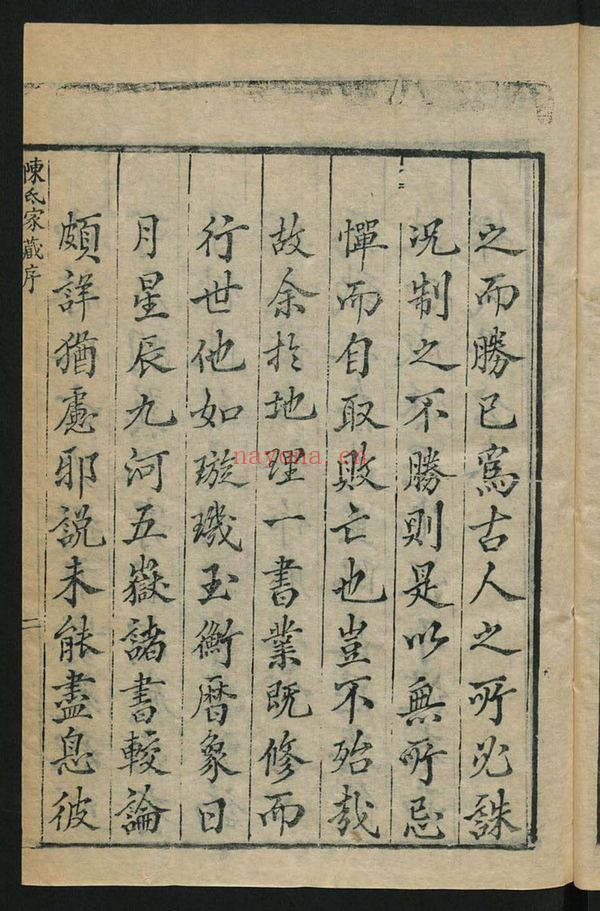 之而勝已為古人之所必誅
況制之不勝則是以無所忌
憚而自取敗亡也豈不殆哉
故余於地理一書業既修而
行世他如璇璣玉衡曆象日
月星辰九河五嶽諸書較論
頗詳猶慮邪説未能盡息彼
陳氏家藏序
二
nayona.cn